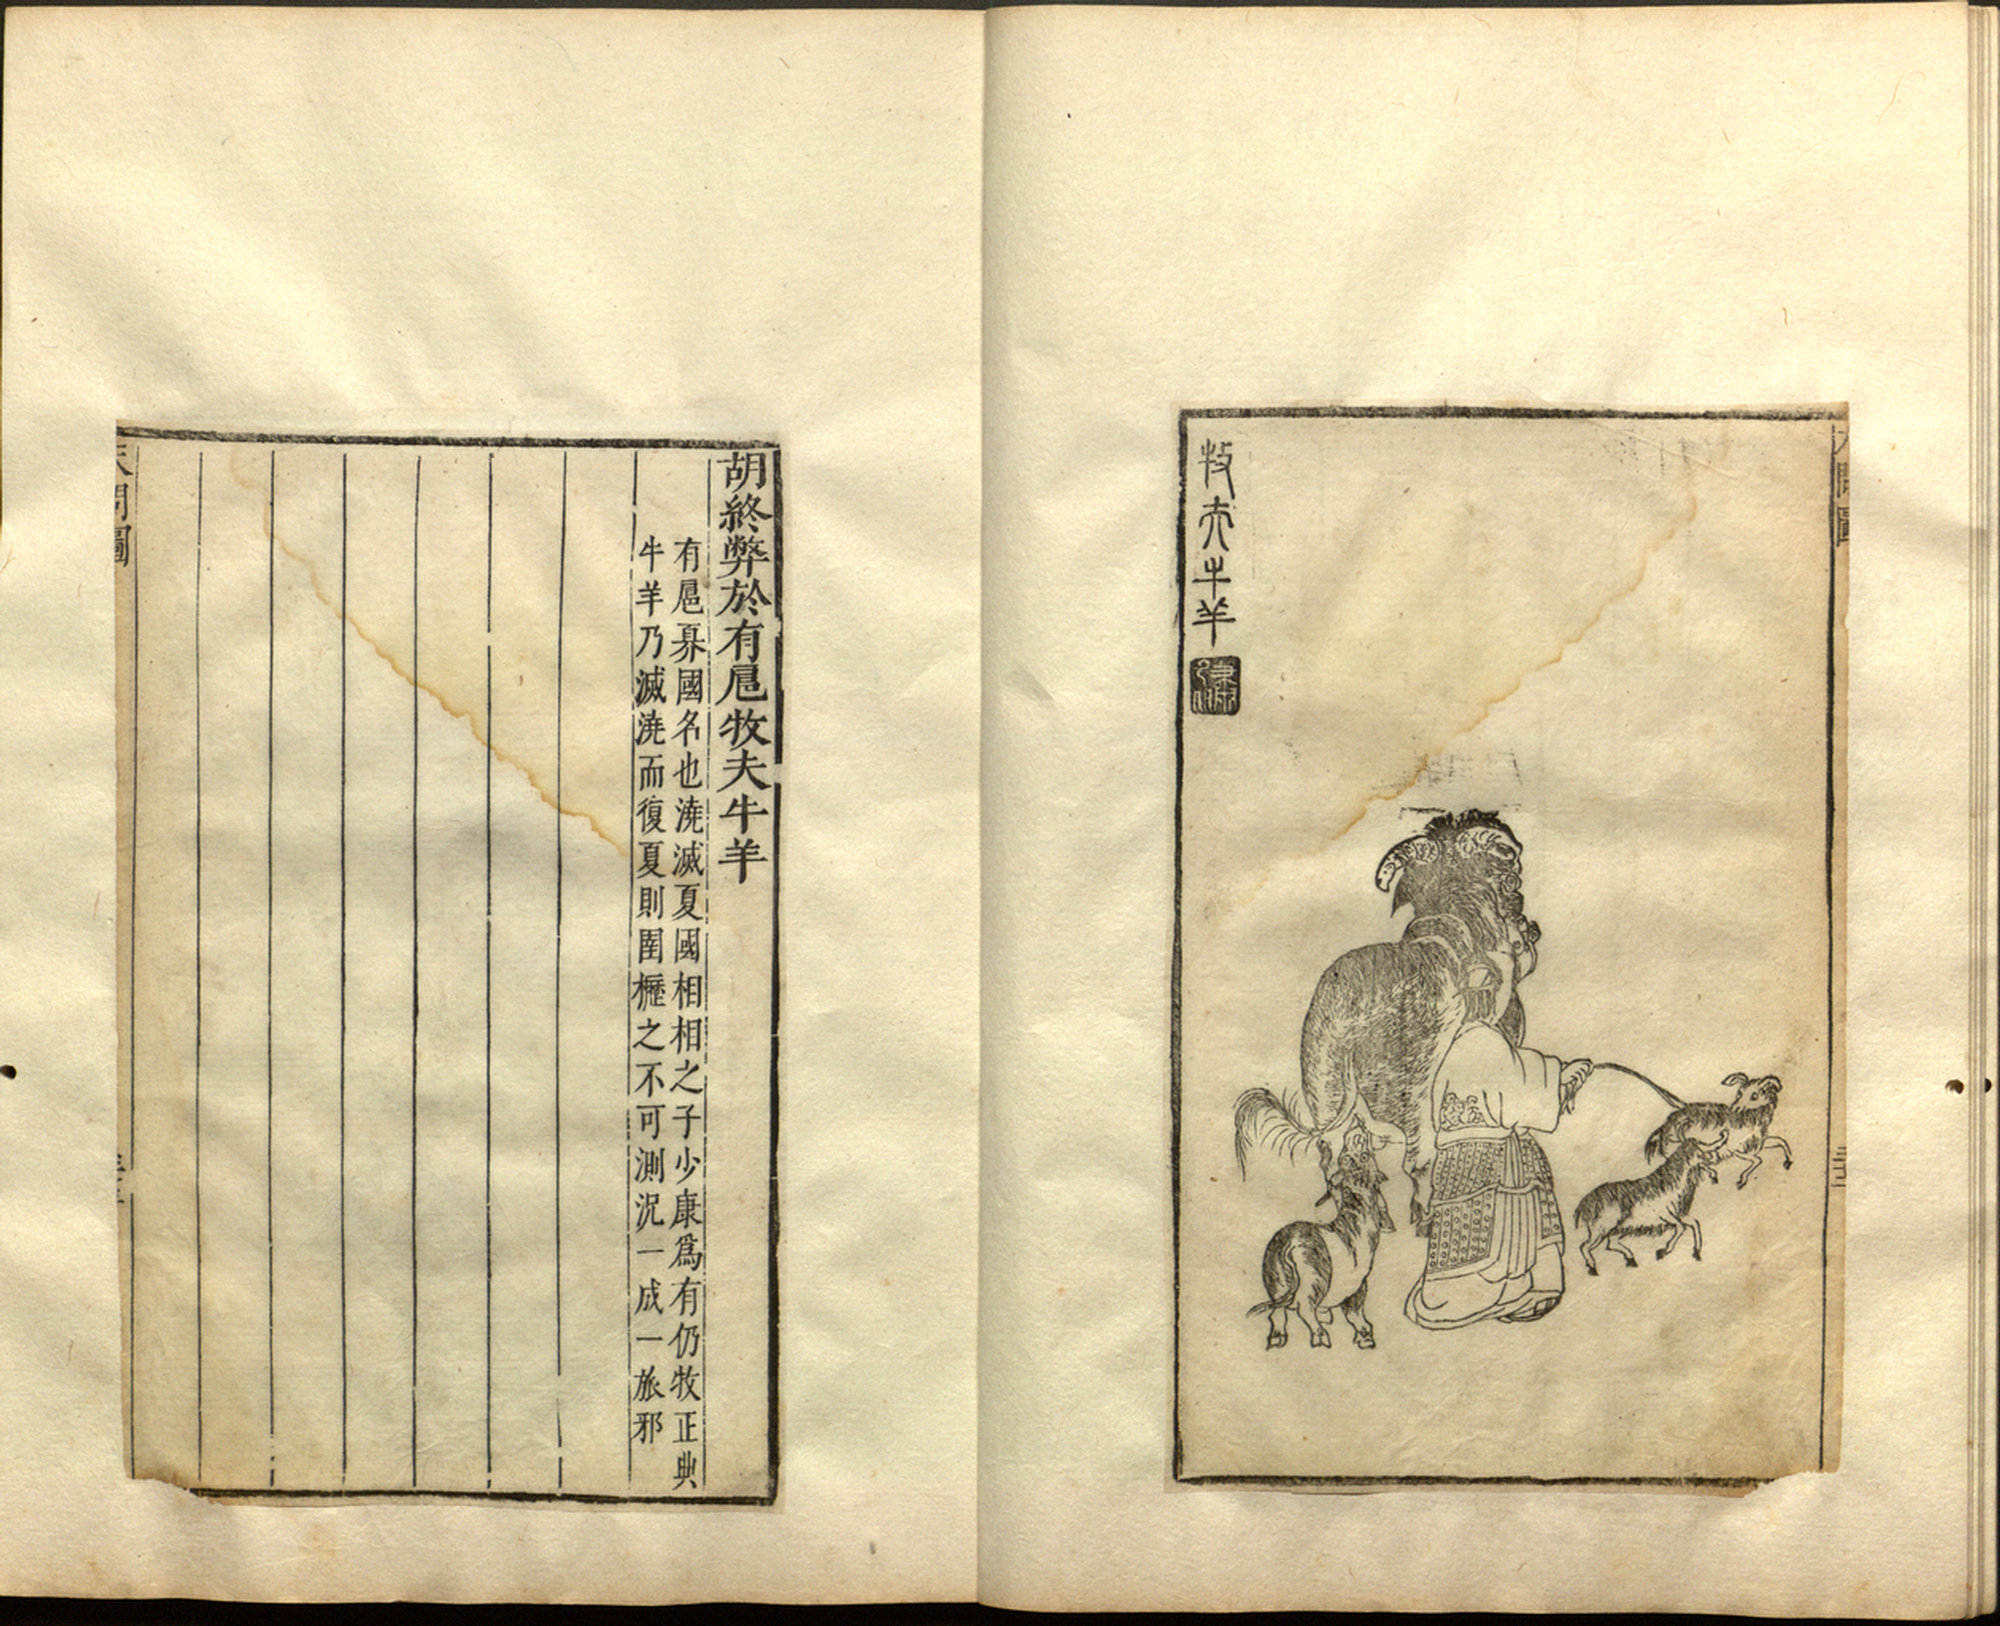 牧夫牛羊
胡終弊於有扈牧夫牛羊
有扈奡國名也澆滅夏國相相之子少康爲有仍牧正典
牛羊乃滅澆而復夏則圉櫪之不可測況一成一旅邪
天問圖